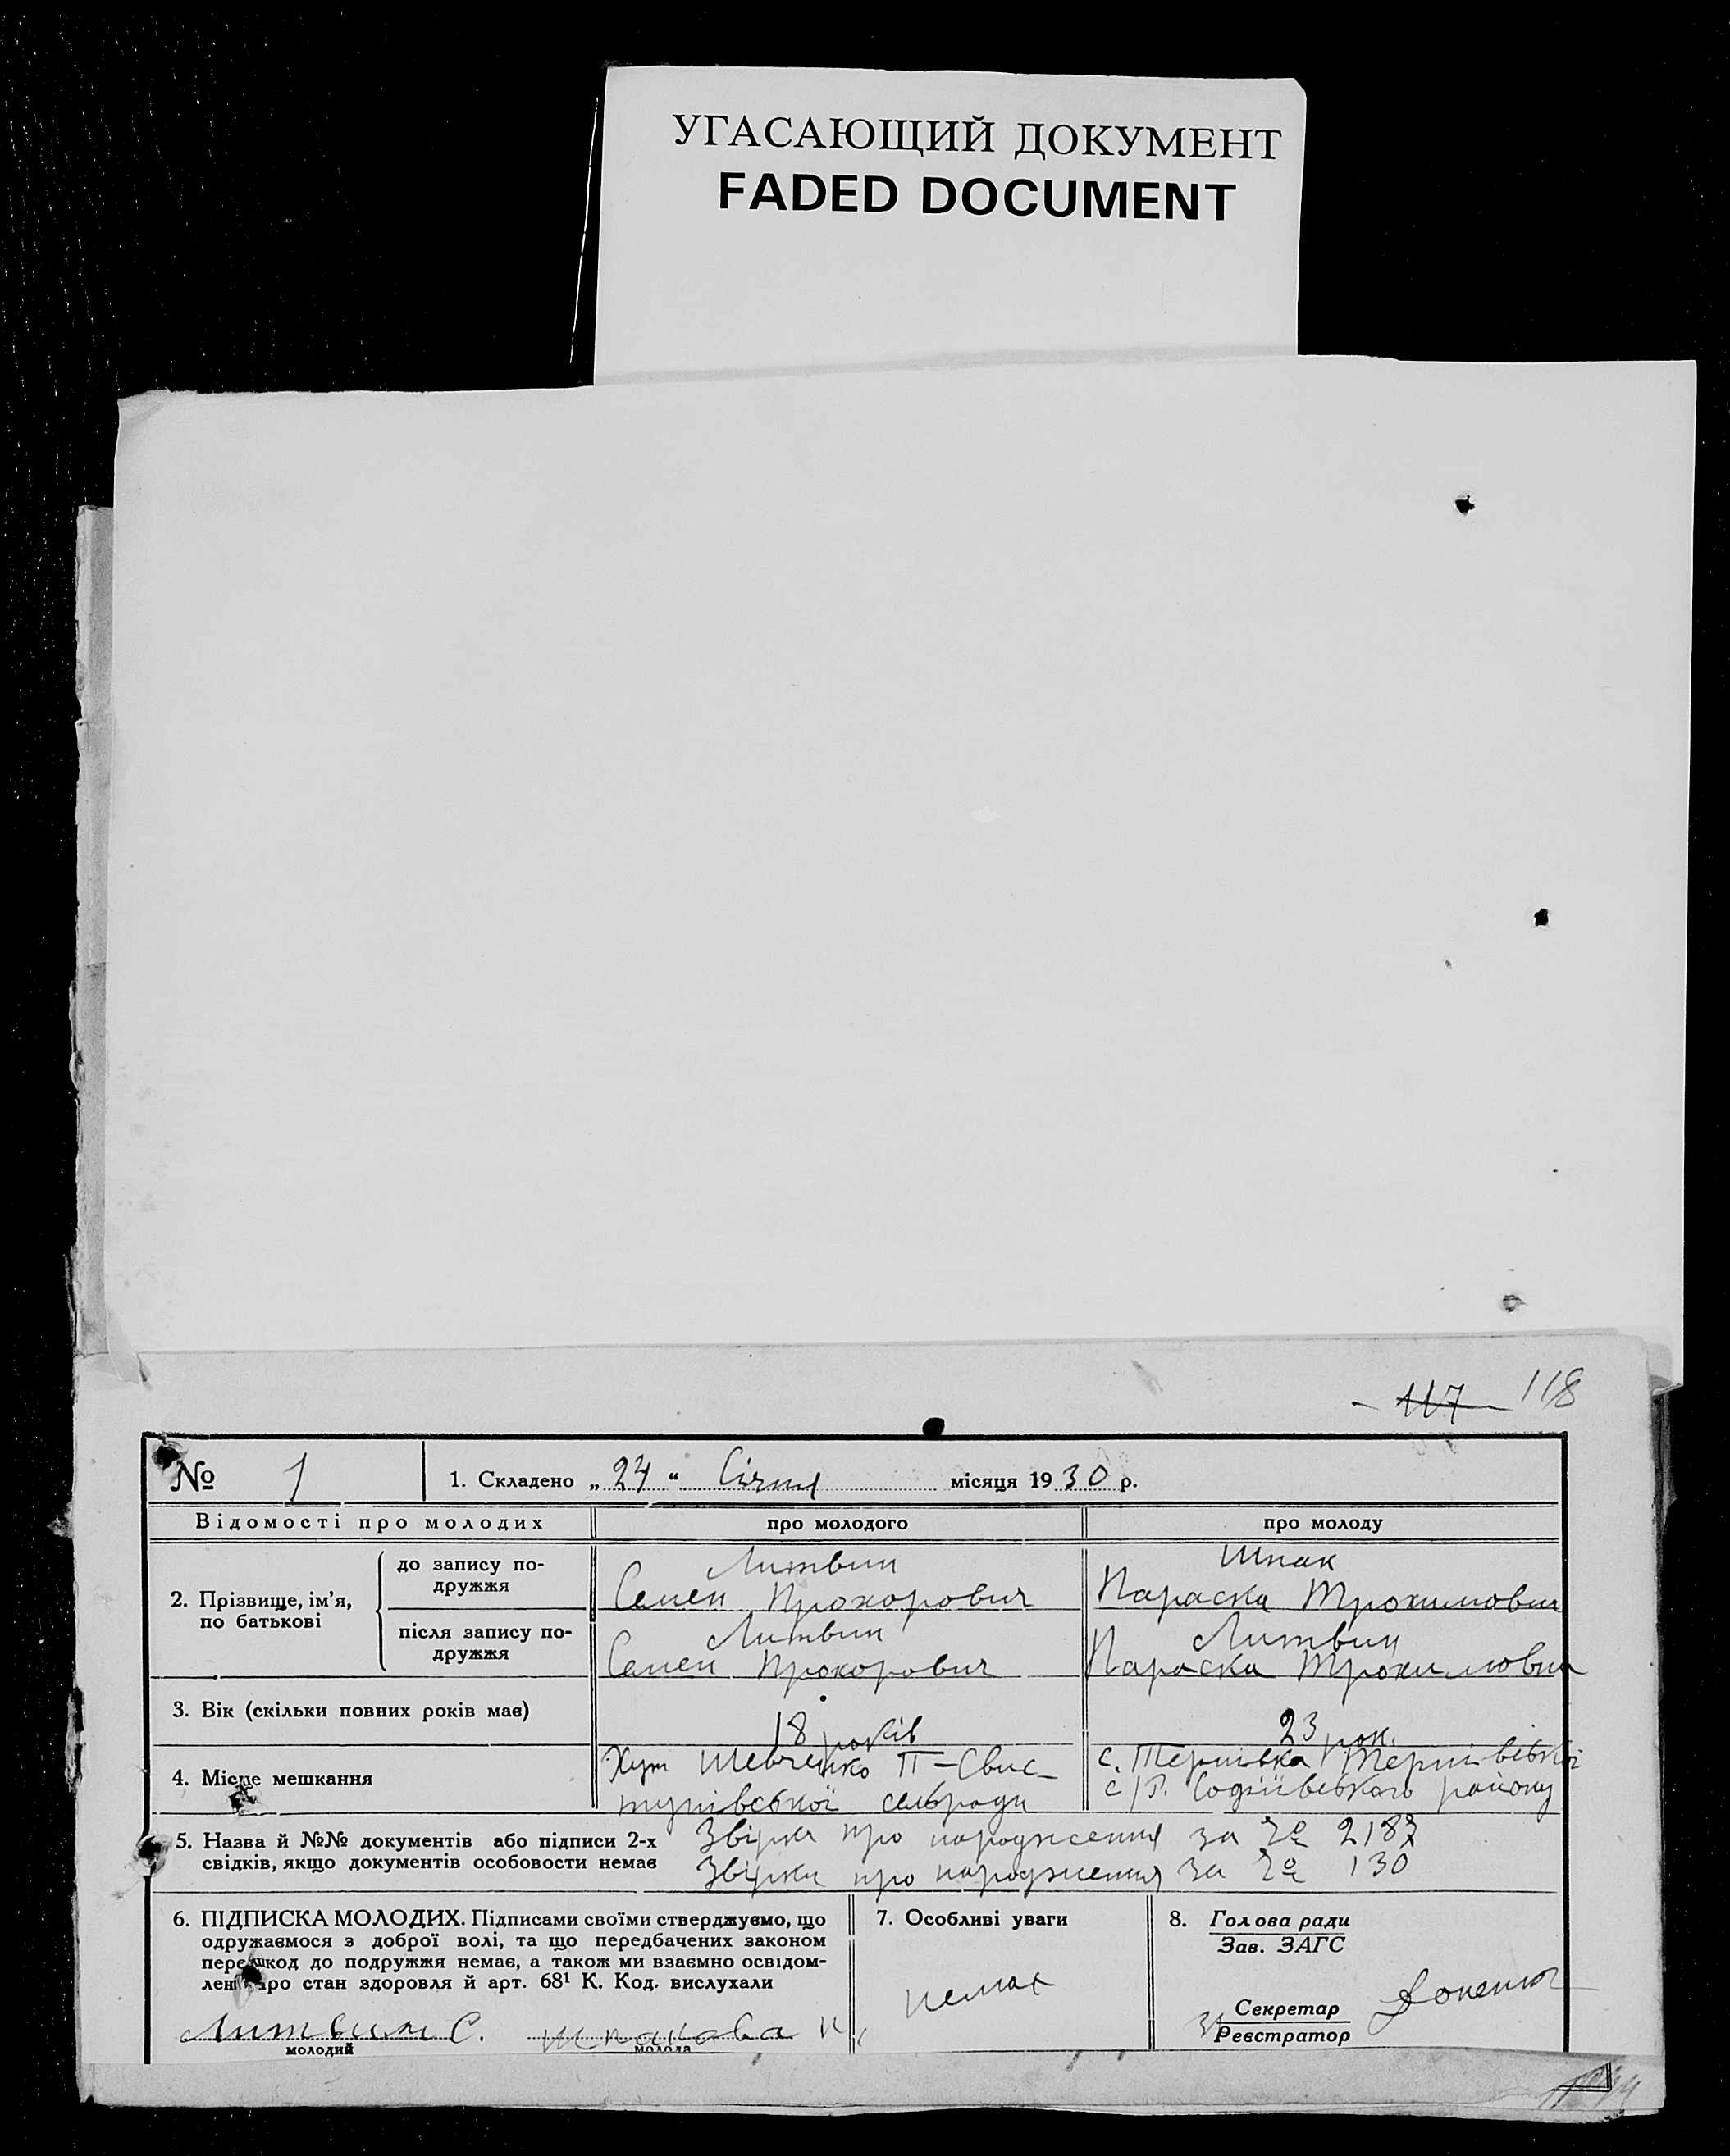 УГАСАЮЩИЙ ДОКУМЕНТ
FADED DOCUMENT
117 118
№ 1
1. Складено „24“ Січня місяця 1930 р.
Відомості про молодих
про молодого
про молоду
2. Прізвище, ім’я, по батькові
до запису по-
дружжя
Литвин
Семен Прохорович
Шпак
Параска Трохимовна
після запису по-
дружжя
Литвин
Семен Прохорович
Литвин
Параска Трохимовна
3. Вік (скільки повних років має)
18 років
23 рок.
4. Місце мешкання
Хут Шевченко П-Свис-
тунівської сельради
с. Тернівка Тернівської
с/р. Софіівського району
5. Назва й №№ документів або підписи 2-х
свідків, якщо документів особовости немає
Звірка про народження за № 2187
Звірки про народження за № 130
6. ПІДПИСКА МОЛОДИХ. Підписами своїми стверджуємо, що
одружаємося з доброї волі, та що передбачених законом
перешкод до подружжя немає, а також ми взаємно освідом-
лені про стан здоровля й арт. 68¹ К. Код. вислухали
Литвин С.
молодий
Шпакова П
молода
7. Особливі уваги
немає
8. Голова ради
Зав. ЗАГС
Секретар
Реєстратор